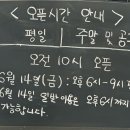 < 오픈시간 안내 >
평일 | 주말 및 공
오전 10시 오픈
6월 14일(금) : 오후 6시~9시
6월 14일 오후 6시까지
가능합니다.